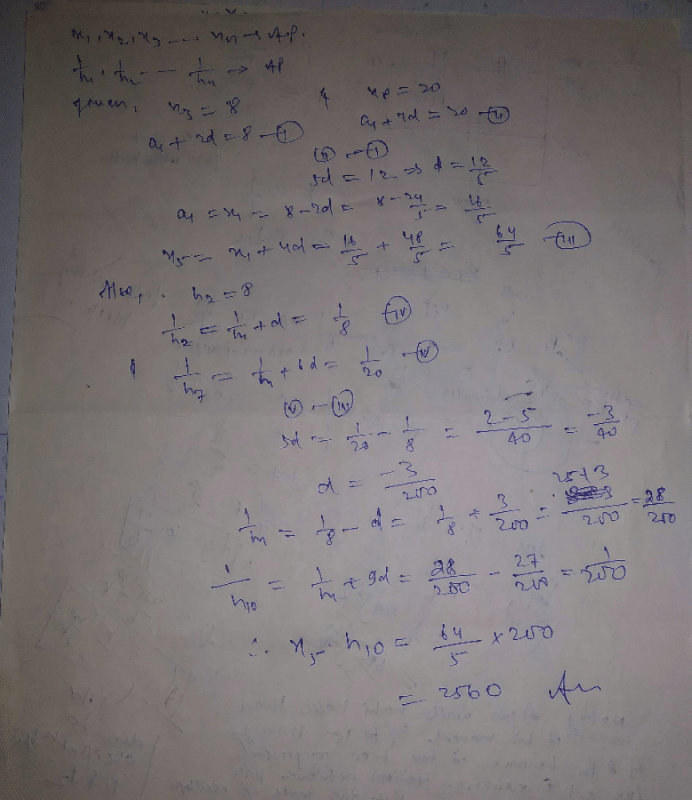 x₁, x₂, x₃ ---- xₙ → A.P.
1/h₁, 1/h₂ --- 1/hₙ → AP
given, x₃ = 8 & x₈ = 20
a₁ + 2d = 8 —(I) a₁ + 7d = 20 —(II)
(II) - (I)
5d = 12 ⇒ d = 12/5
a₁ = x₁ = 8 - 2d = 8 - 24/5 = 16/5
x₅ = x₁ + 4d = 16/5 + 48/5 = 64/5 —(III)
Also, h₂ = 8
1/h₂ = 1/h₁ + d = 1/8 —(IV)
& 1/h₇ = 1/h₁ + 6d = 1/20 —(V)
(V) - (IV)
5d = 1/20 - 1/8 = (2-5)/40 = -3/40
d = -3/200
1/h₁ = 1/8 - d = 1/8 + 3/200 = (25+3)/200 = 28/200
1/h₁₀ = 1/h₁ + 9d = 28/200 - 27/200 = 1/200
∴ x₅. h₁₀ = 64/5 × 200
= 2560 Ans